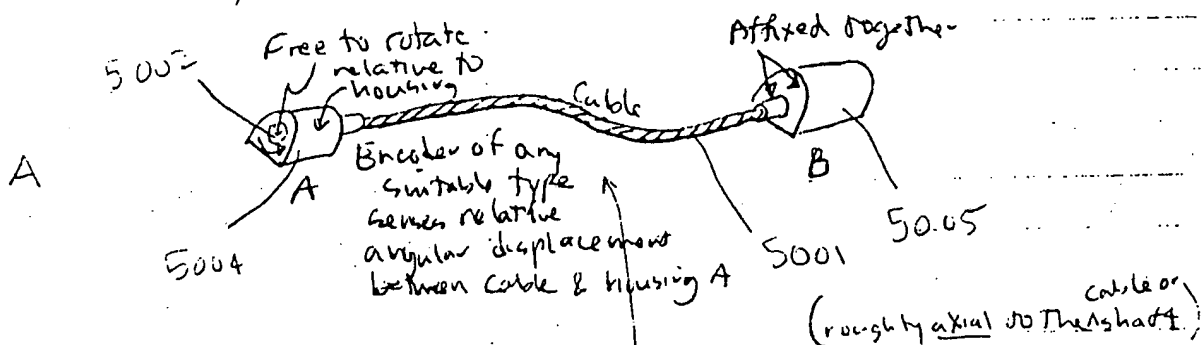 Free to rotate
relative to
housing
5002
Affixed together
Cable
A
A
B
Encoder of any
suitable type
senses relative
angular displacement
between cable & housing A
5004
5001
50.05
cable or
(roughly axial to the shaft)